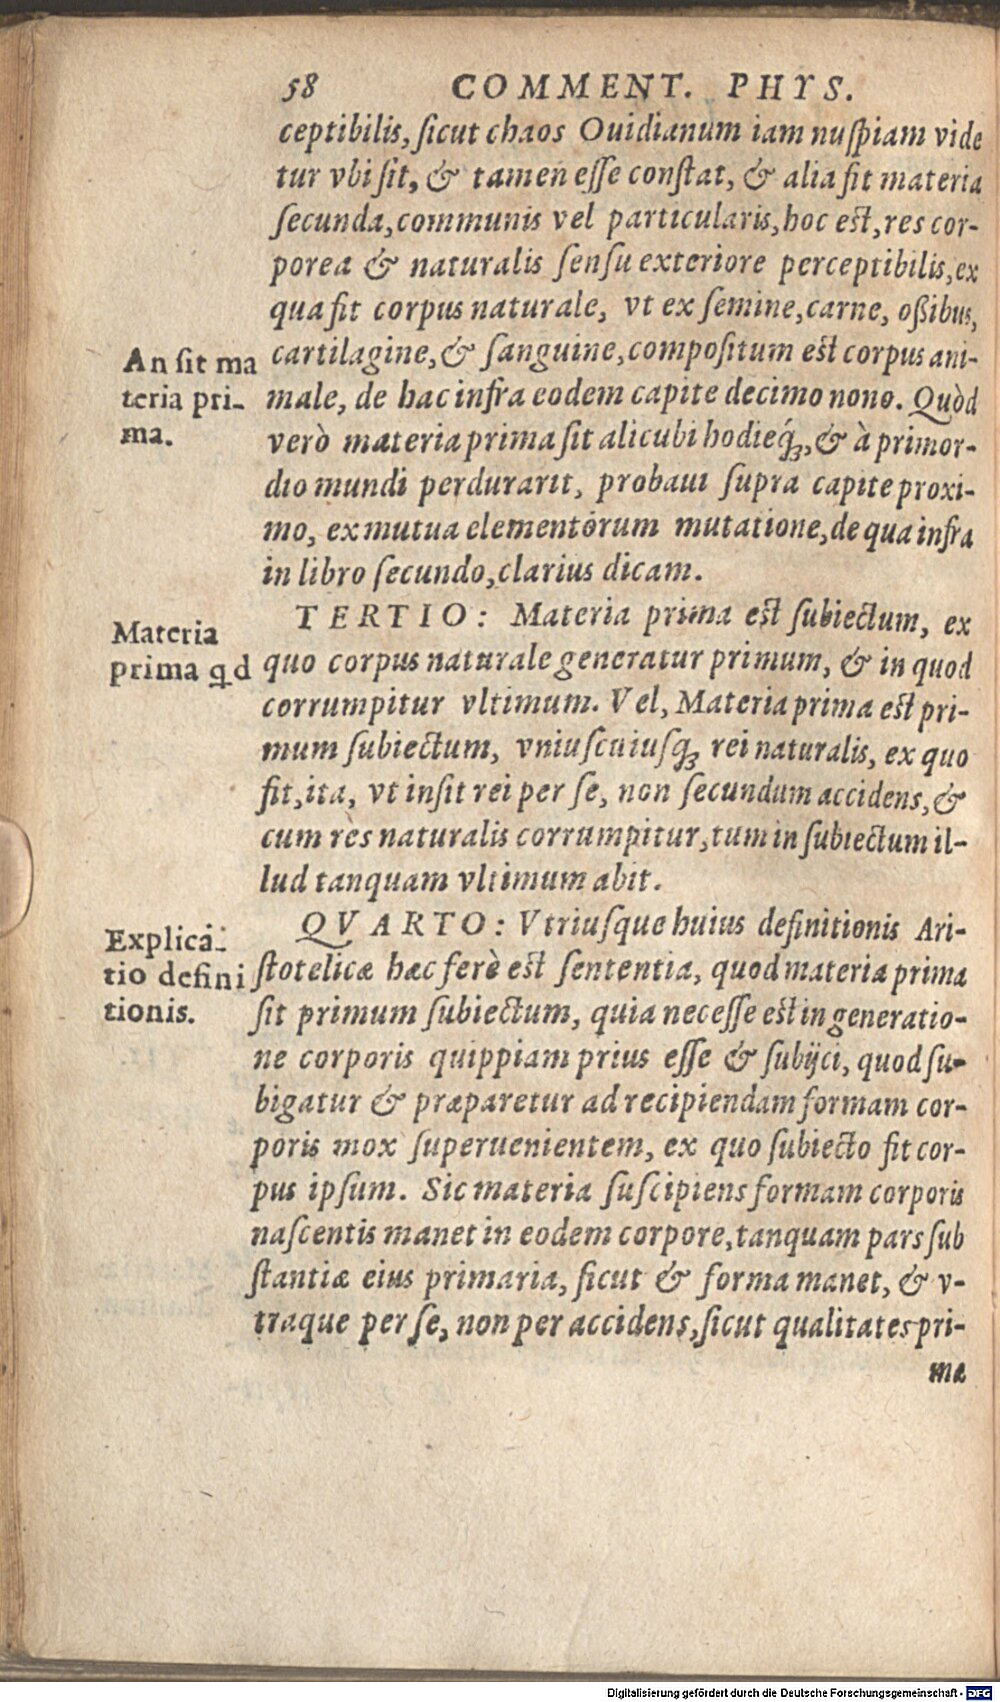 58 COMMENT. PHYS.
ceptibilis, ſicut chaos Ouidianum iam nuſpiam vide
tur vbi ſit, & tamen eſſe conſtat, & alia ſit materia
ſecunda, communis vel particularis, hoc eſt, res cor-
porea & naturalis ſenſu exteriore perceptibilis, ex
qua fit corpus naturale, vt ex ſemine, carne, oßibus,
An ſit ma
teria pri-
ma.
cartilagine, & ſanguine, compoſitum eſt corpus ani-
male, de hac infra eodem capite decimo nono. Quòd
verò materia prima ſit alicubi hodieq́ꝫ, & à primor-
dio mundi perdurarit, probaui ſupra capite proxi-
mo, ex mutua elementorum mutatione, de qua infra
in libro ſecundo, clarius dicam.
Materia
prima qd
TERTIO: Materia prima eſt ſubiectum, ex
quo corpus naturale generatur primum, & in quod
corrumpitur vltimum. Vel, Materia prima eſt pri-
mum ſubiectum, vniuſcuiuſqꝫ rei naturalis, ex quo
fit, ita, vt inſit rei per ſe, non ſecundum accidens, &
cum res naturalis corrumpitur, tum in ſubiectum il-
lud tanquam vltimum abit.
Explica-
tio defini
tionis.
QVARTO: Vtriuſque huius definitionis Ari-
ſtotelicæ hæc ferè eſt ſententia, quod materia prima
ſit primum ſubiectum, quia neceſſe eſt in generatio-
ne corporis quippiam prius eſſe & ſubijci, quod ſu-
bigatur & præparetur ad recipiendam formam cor-
poris mox ſuperuenientem, ex quo ſubiecto fit cor-
pus ipſum. Sic materia ſuſcipiens formam corporis
naſcentis manet in eodem corpore, tanquam pars ſub
ſtantiæ eius primaria, ſicut & forma manet, & v-
traque per ſe, non per accidens, ſicut qualitates pri-
mæ
Digitalisierung gefördert durch die Deutsche Forschungsgemeinschaft - DFG